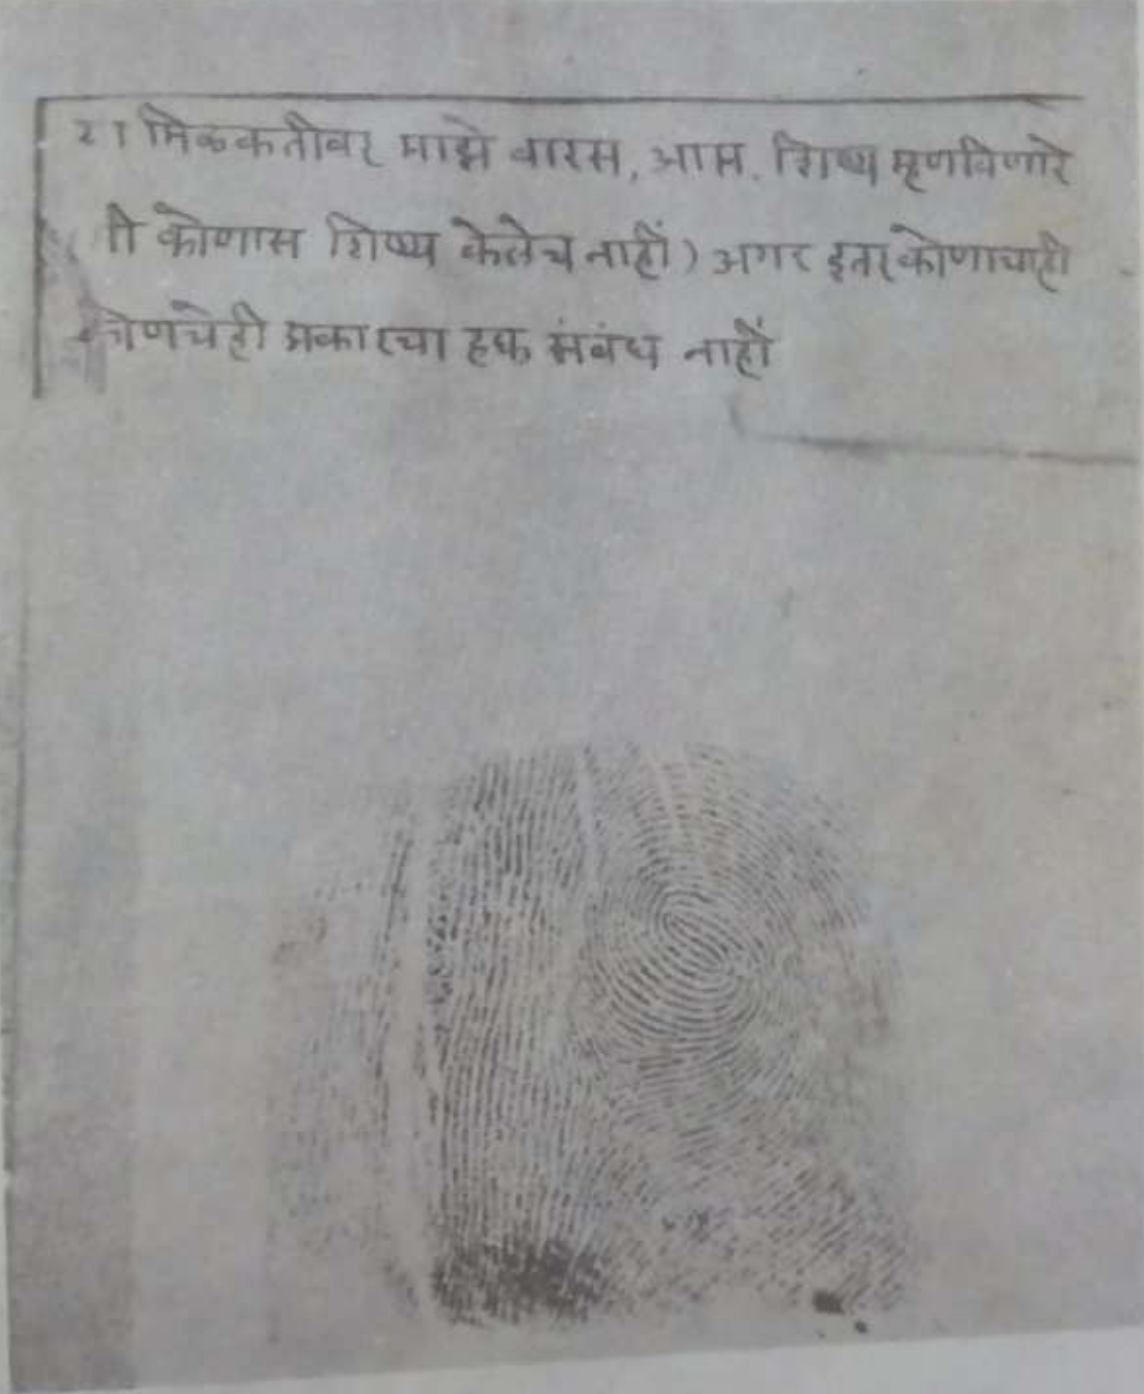 या मिळकतीवर माझे वारस, आप्त. शिष्य म्हणविणारे
मी कोणास शिष्य केलेच नाहीं) अगर इतर कोणाचाही
कोणचेही प्रकारचा हक संबंध नाहीं